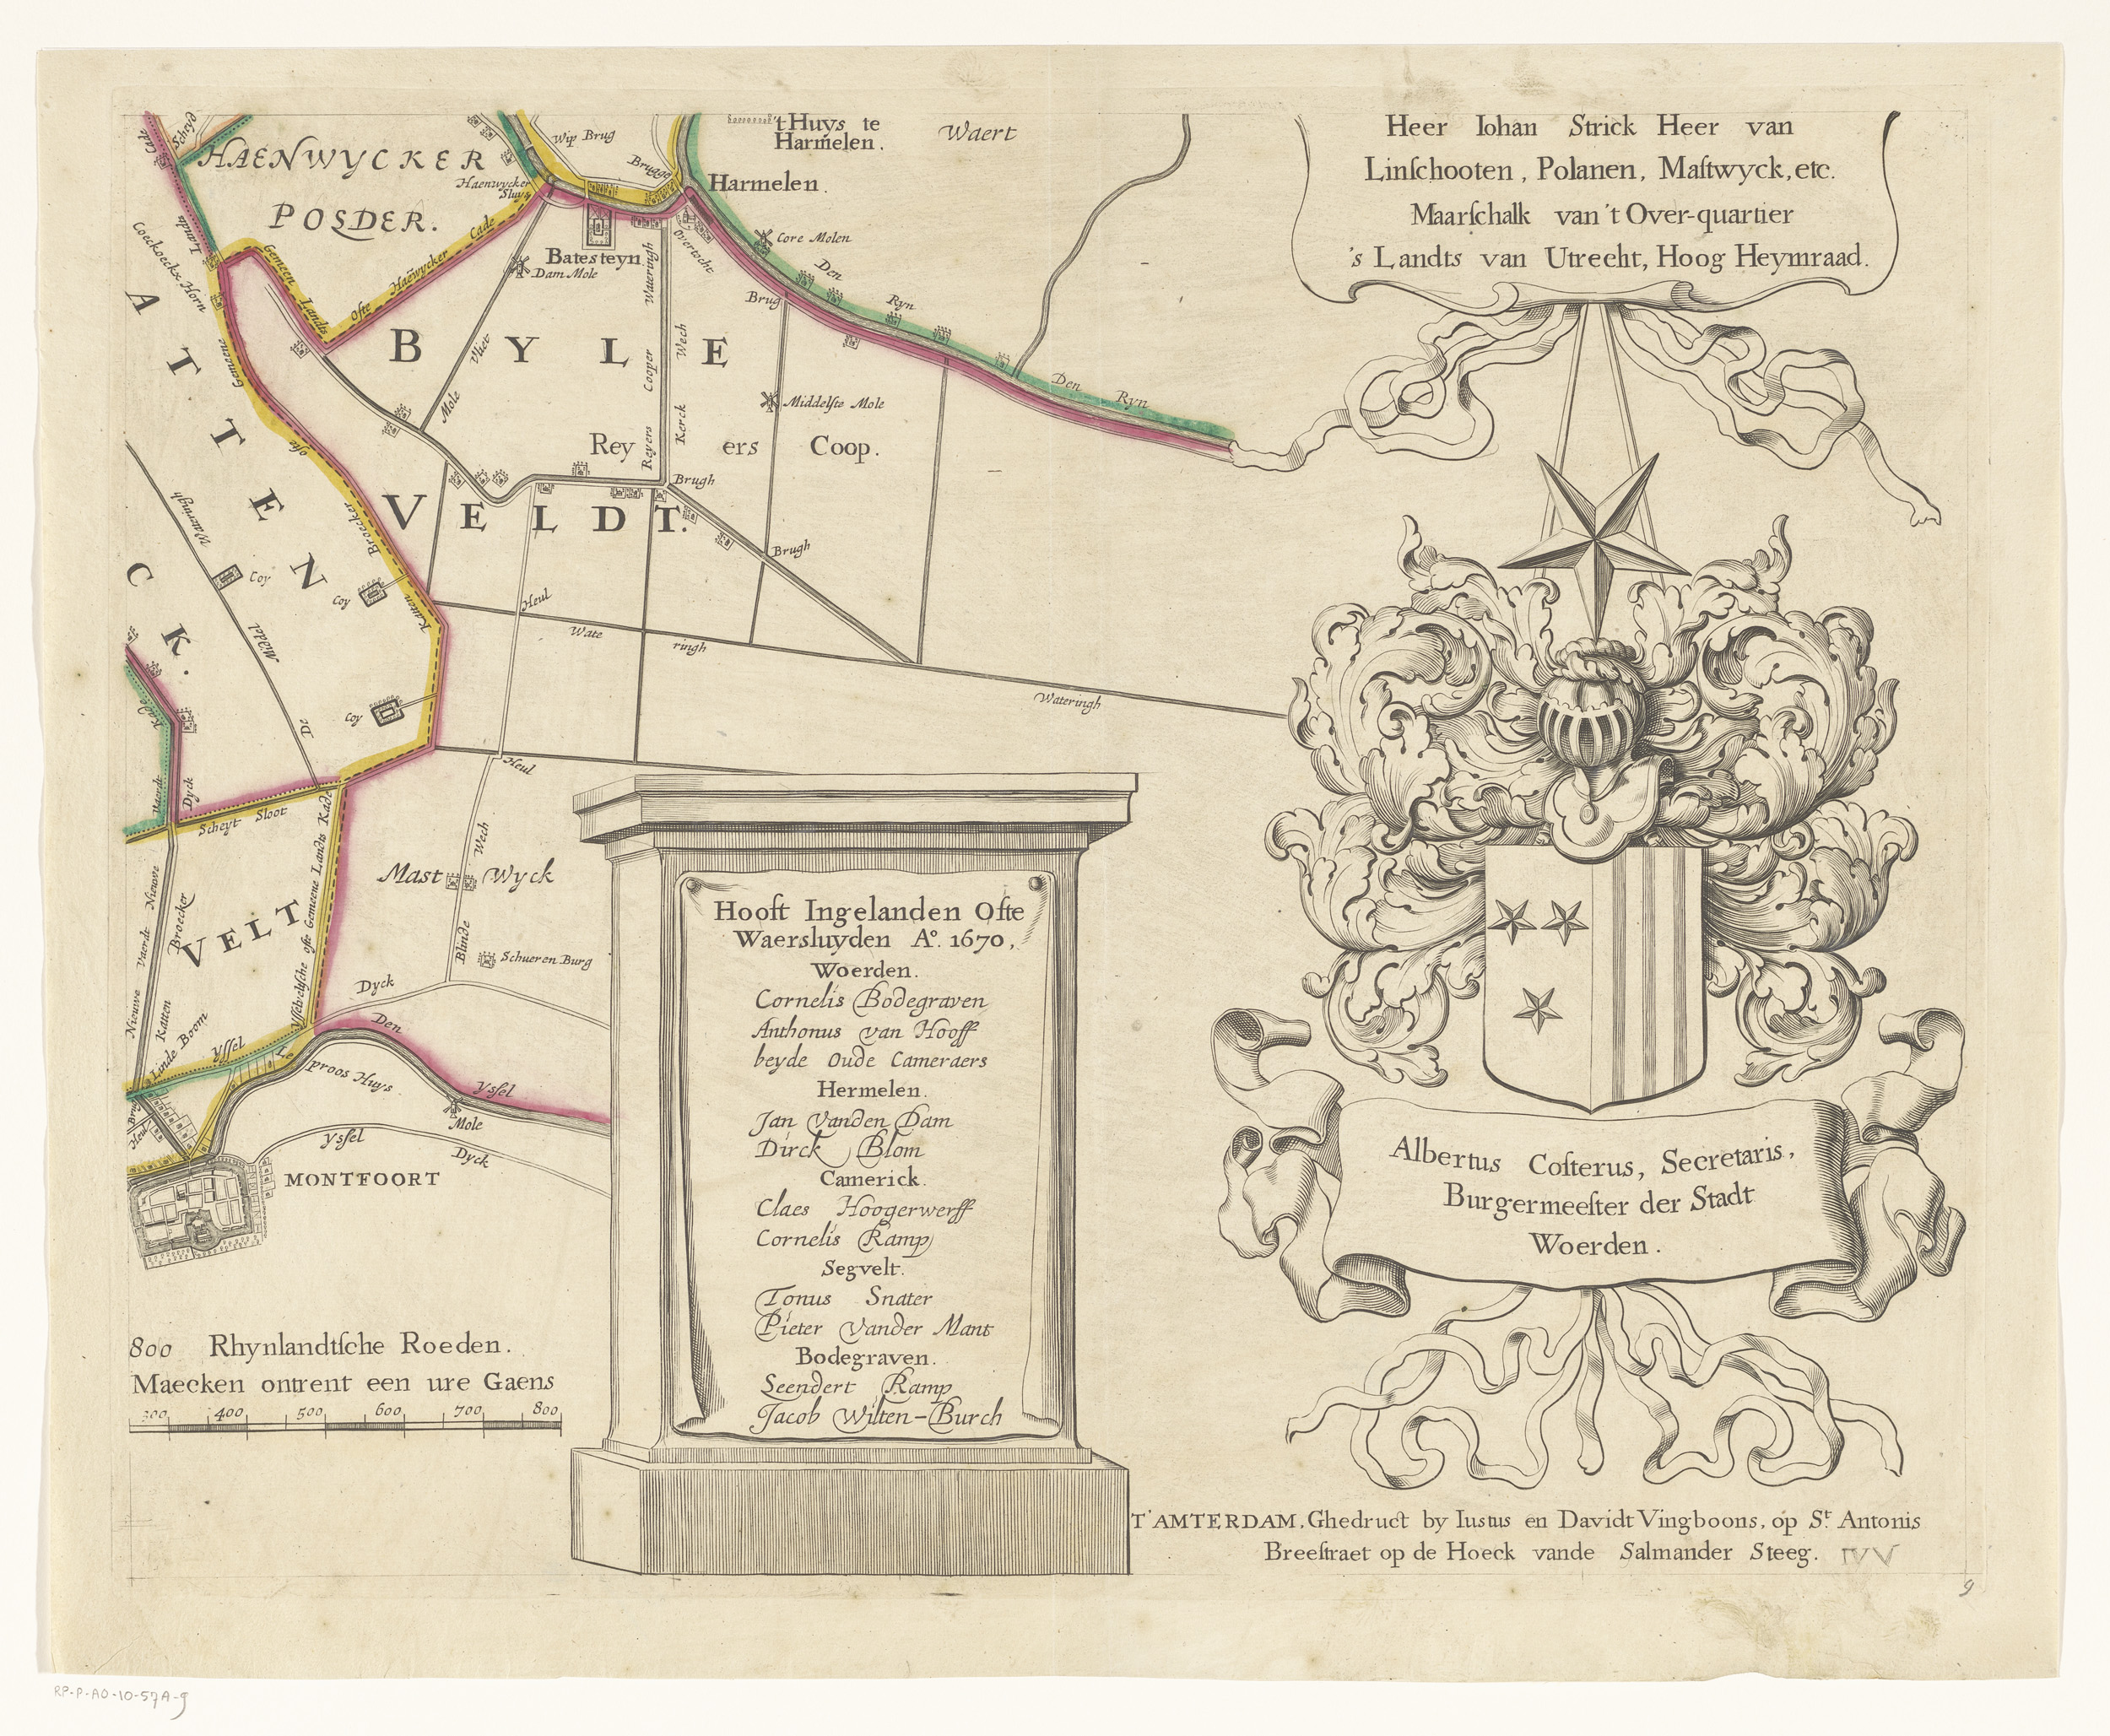 't Huys te
Harmelen.
Waert
Wip Brug
Brugge
Harmelen.
Cade
Schryd
HAENWYCKER
POLDER.
Haenwycker
Sluys
Landts
Coeckoeckx Horn
Gemeen Landts Ofte Haewycker Cade
Batesteyn
Dam Mole
Overtocht
Core Molen
Den Ryn
Brug
Den Ryn
BYLE
VELDT.
Mole Vliet
Reyers Cooper Wateringh
Kerck Wech
Middelſte Mole
Rey ers Coop.
Brugh
Brugh
Gemeene ofte Broecker Katten
ATTEN
CK.
Wateringh
Middel
De
Coy
Coy
Coy
Heul
Wate ringh
Wateringh
Heul
Kade
Dyck
Scheyt Sloot
Mast Wyck
Blinde Wech
Schueren Burg
VELT
Nieuwe Vaerdt Nieuwe
Katten Broecker
Yſſelvelſche oft Gemeene Landts Kade
Dyck
Linde Boom
Yſſel
Leproos Huys
Den Yſſel
Mole
Yſſel Dyck
Heul
MONTFOORT
800 Rhynlandtſche Roeden.
Maecken ontrent een ure Gaens
300 400 500 600 700 800
Hooft Ingelanden Ofte
Waersluyden Aº. 1670,
Woerden.
Cornelis Bodegraven
Anthonus van Hooff
beyde Oude Cameraers
Hermelen.
Jan Vanden Dam
Dirck Blom
Camerick.
Claes Hoogerwerff
Cornelis Ramp
Segvelt.
Tonus Snater
Pieter Vander Mant
Bodegraven.
Seendert Ramp
Jacob Wilten-Burch
Heer Iohan Strick Heer van
Linſchooten, Polanen, Maſtwyck, etc.
Maarſchalk van 't Over-quartier
's Landts van Utrecht, Hoog Heymraad.
Albertus Coſterus, Secretaris,
Burgermeeſter der Stadt
Woerden.
T'AMTERDAM, Ghedruct by Iustus en Davidt Vingboons, op St. Antonis
Breeſtraet op de Hoeck vande Salmander Steeg.
9
RP-P-AO-10-57A-9